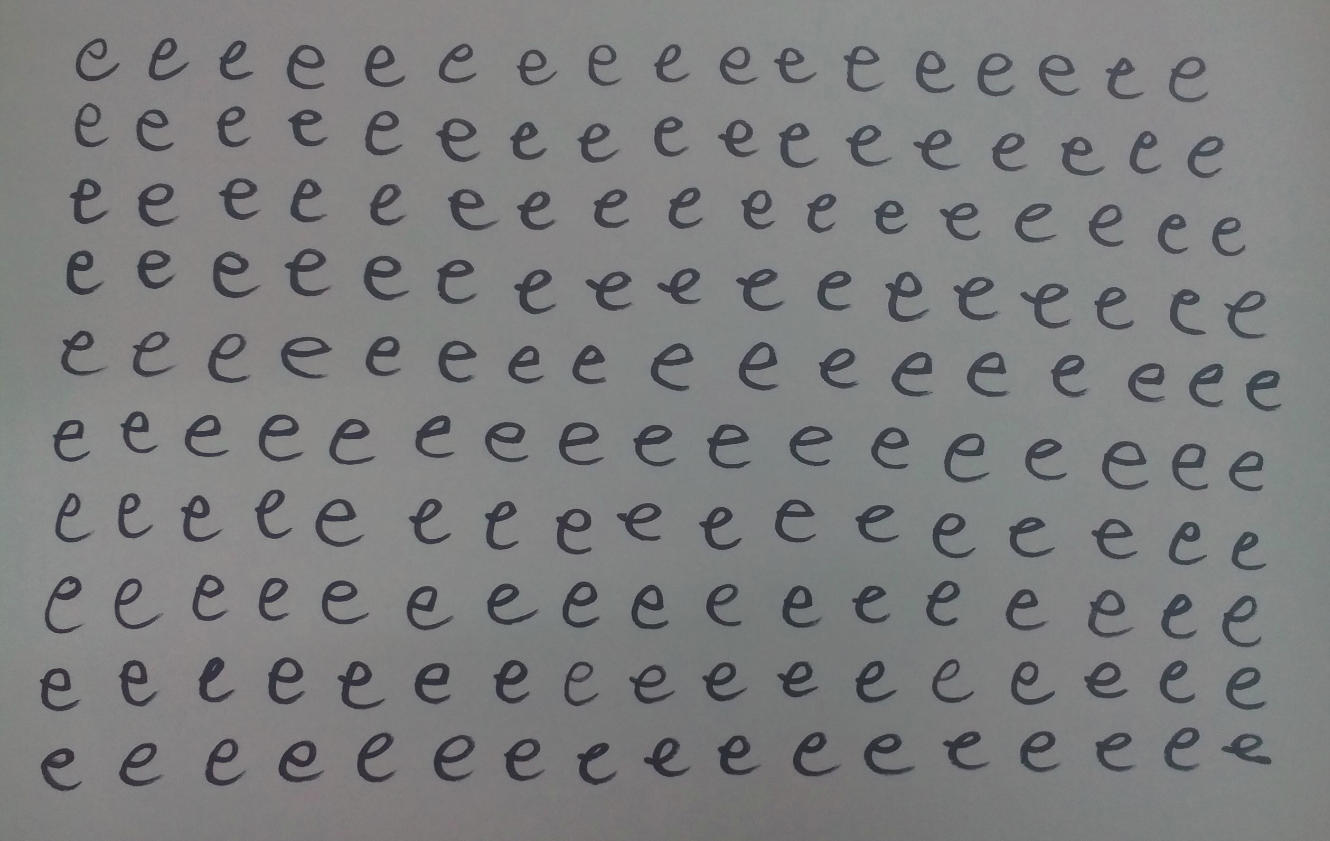 e e e e e e e e e e e e e e e e e
e e e e e e e e e e e e e e e e e
e e e e e e e e e e e e e e e e e
e e e e e e e e e e e e e e e e e
e e e e e e e e e e e e e e e e e
e e e e e e e e e e e e e e e e e
e e e e e e e e e e e e e e e e e
e e e e e e e e e e e e e e e e e
e e e e e e e e e e e e e e e e e
e e e e e e e e e e e e e e e e e